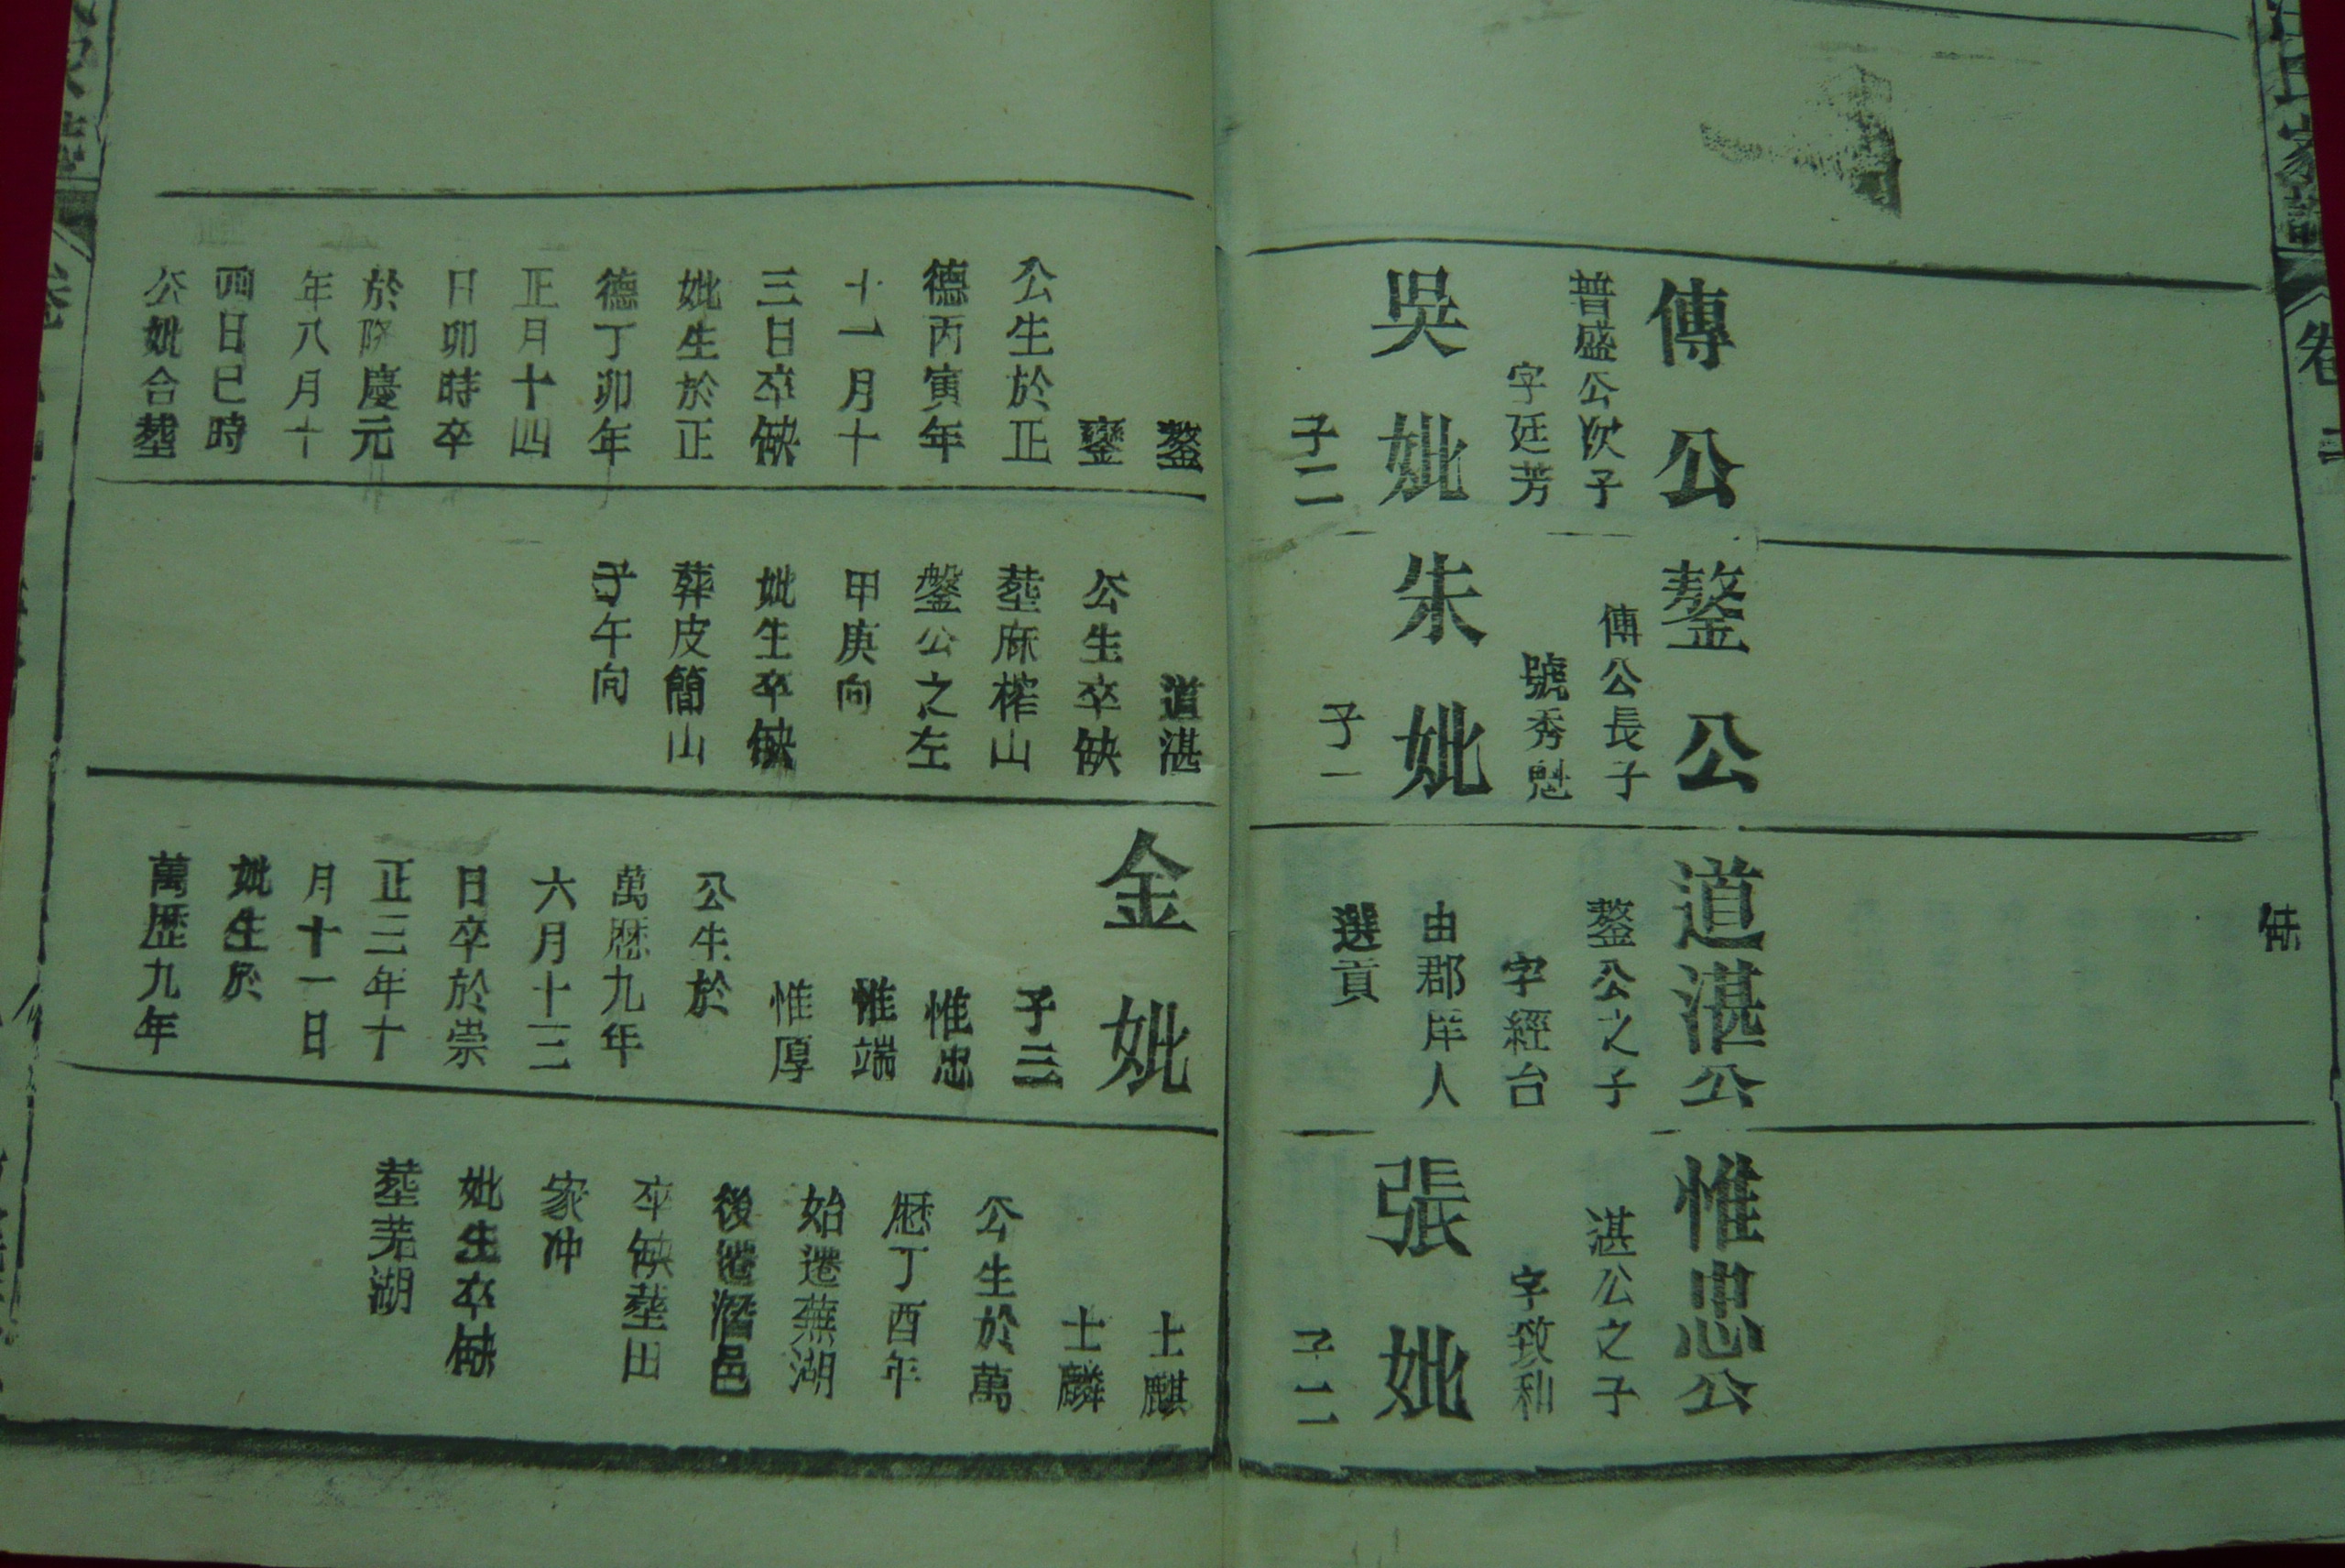 氏家譜
卷二
傳公
普盛公次子
字廷芳
吳妣
子二
鏊
鑾
公生於正
德丙寅年
十一月十
三日卒缺
妣生於正
德丁卯年
正月十四
日卯時卒
於隆慶元
年八月十
四日巳時
公妣合塟
鏊公
傅公長子
號秀魁
朱妣
子一
道湛
公生卒缺
塟麻榨山
鏧公之左
甲庚向
妣生卒缺
葬皮簡山
子午向
缺
道湛公
鏊公之子
字經台
由郡庠人
選貢
金妣
子三
惟忠
惟端
惟厚
公生於
萬歷九年
六月十三
日卒於崇
正三年十
月十一日
妣生於
萬歷九年
惟忠公
湛公之子
字致和
張妣
子二
士麒
士麟
公生於萬
歷丁酉年
始遷蕪湖
後遷潛邑
卒缺塟田
家冲
妣生卒缺
塟芜湖